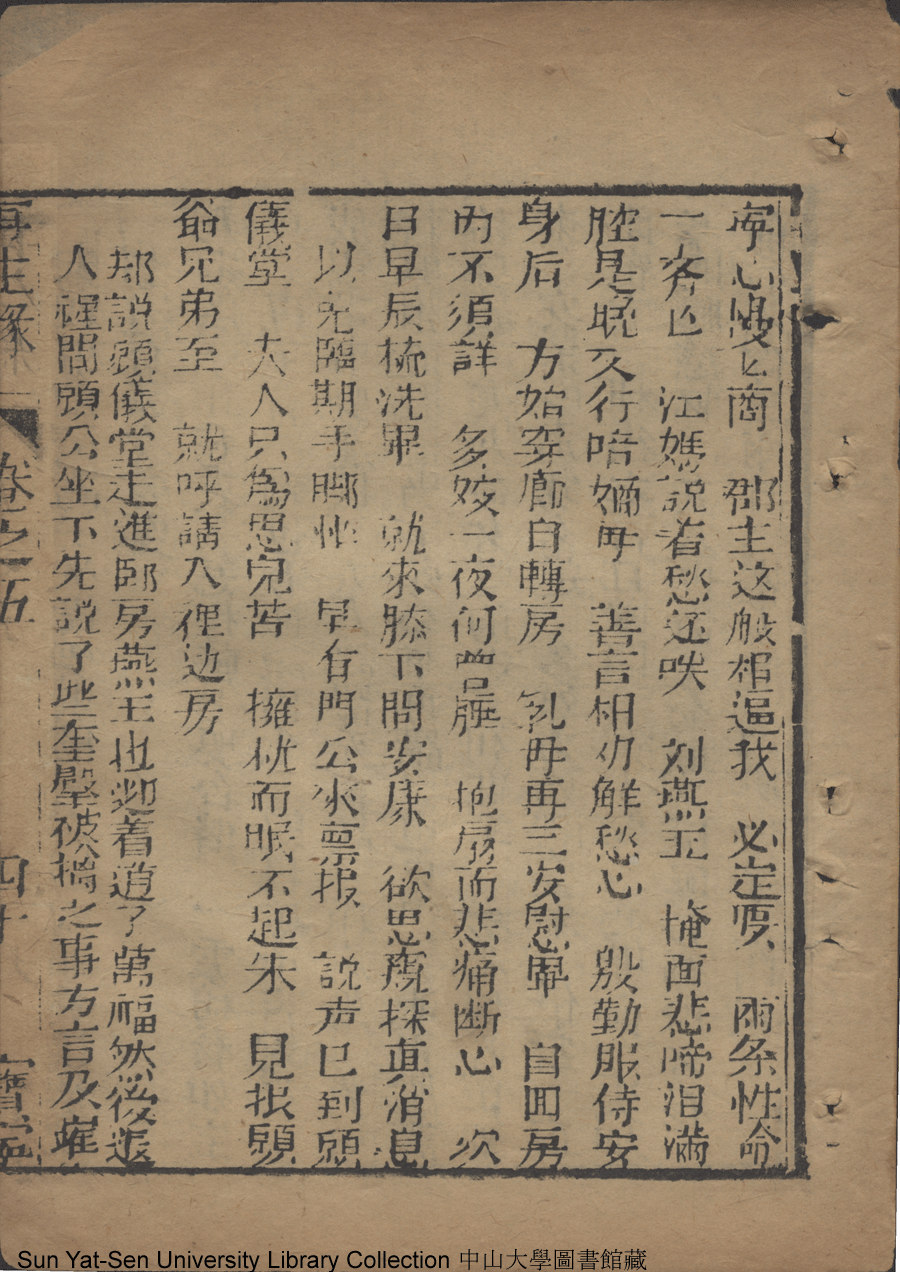 寕心慢匕商　郡主这般相逼我　必定要　兩条性命
一斉亡　江媽説着愁还哄　刘燕玉　掩面悲啼泪満
腔是晩又行唔嫡毋　善言相劝觧愁心　殷勤服侍安
身后　方始穿廊自轉房　乳毋再三安慰畢　自囬房
内不須詳　多姣一夜何曽睡　抱扇而悲痛断心　次
日早辰梳洗畢　就來膝下問安康　欲思窺探真消息
以免臨期手脚忙　早有門公來禀报　説声已到顧
儀堂　夫人只爲思兒苦　擁枕而眠不起床　見报顧
爺兄弟至　就呼請入裡边房
却説顧儀堂走進卧房燕玉也迎着道了萬福然後退
人裡間顧公坐下先説了些奎璧被擒之事方言及崔
再生緣　卷之五　四十　寶寕
Sun Yat-Sen University Library Collection 中山大學圖書館藏